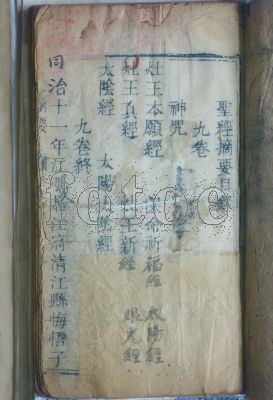 聖經摘要目錄
九卷
神咒
灶王本願經 祈福經 太陽經
灶王真經 灶王新經 眼光經
太陰經 太陽
九卷終
同治十一年江 府清江縣悔悟子